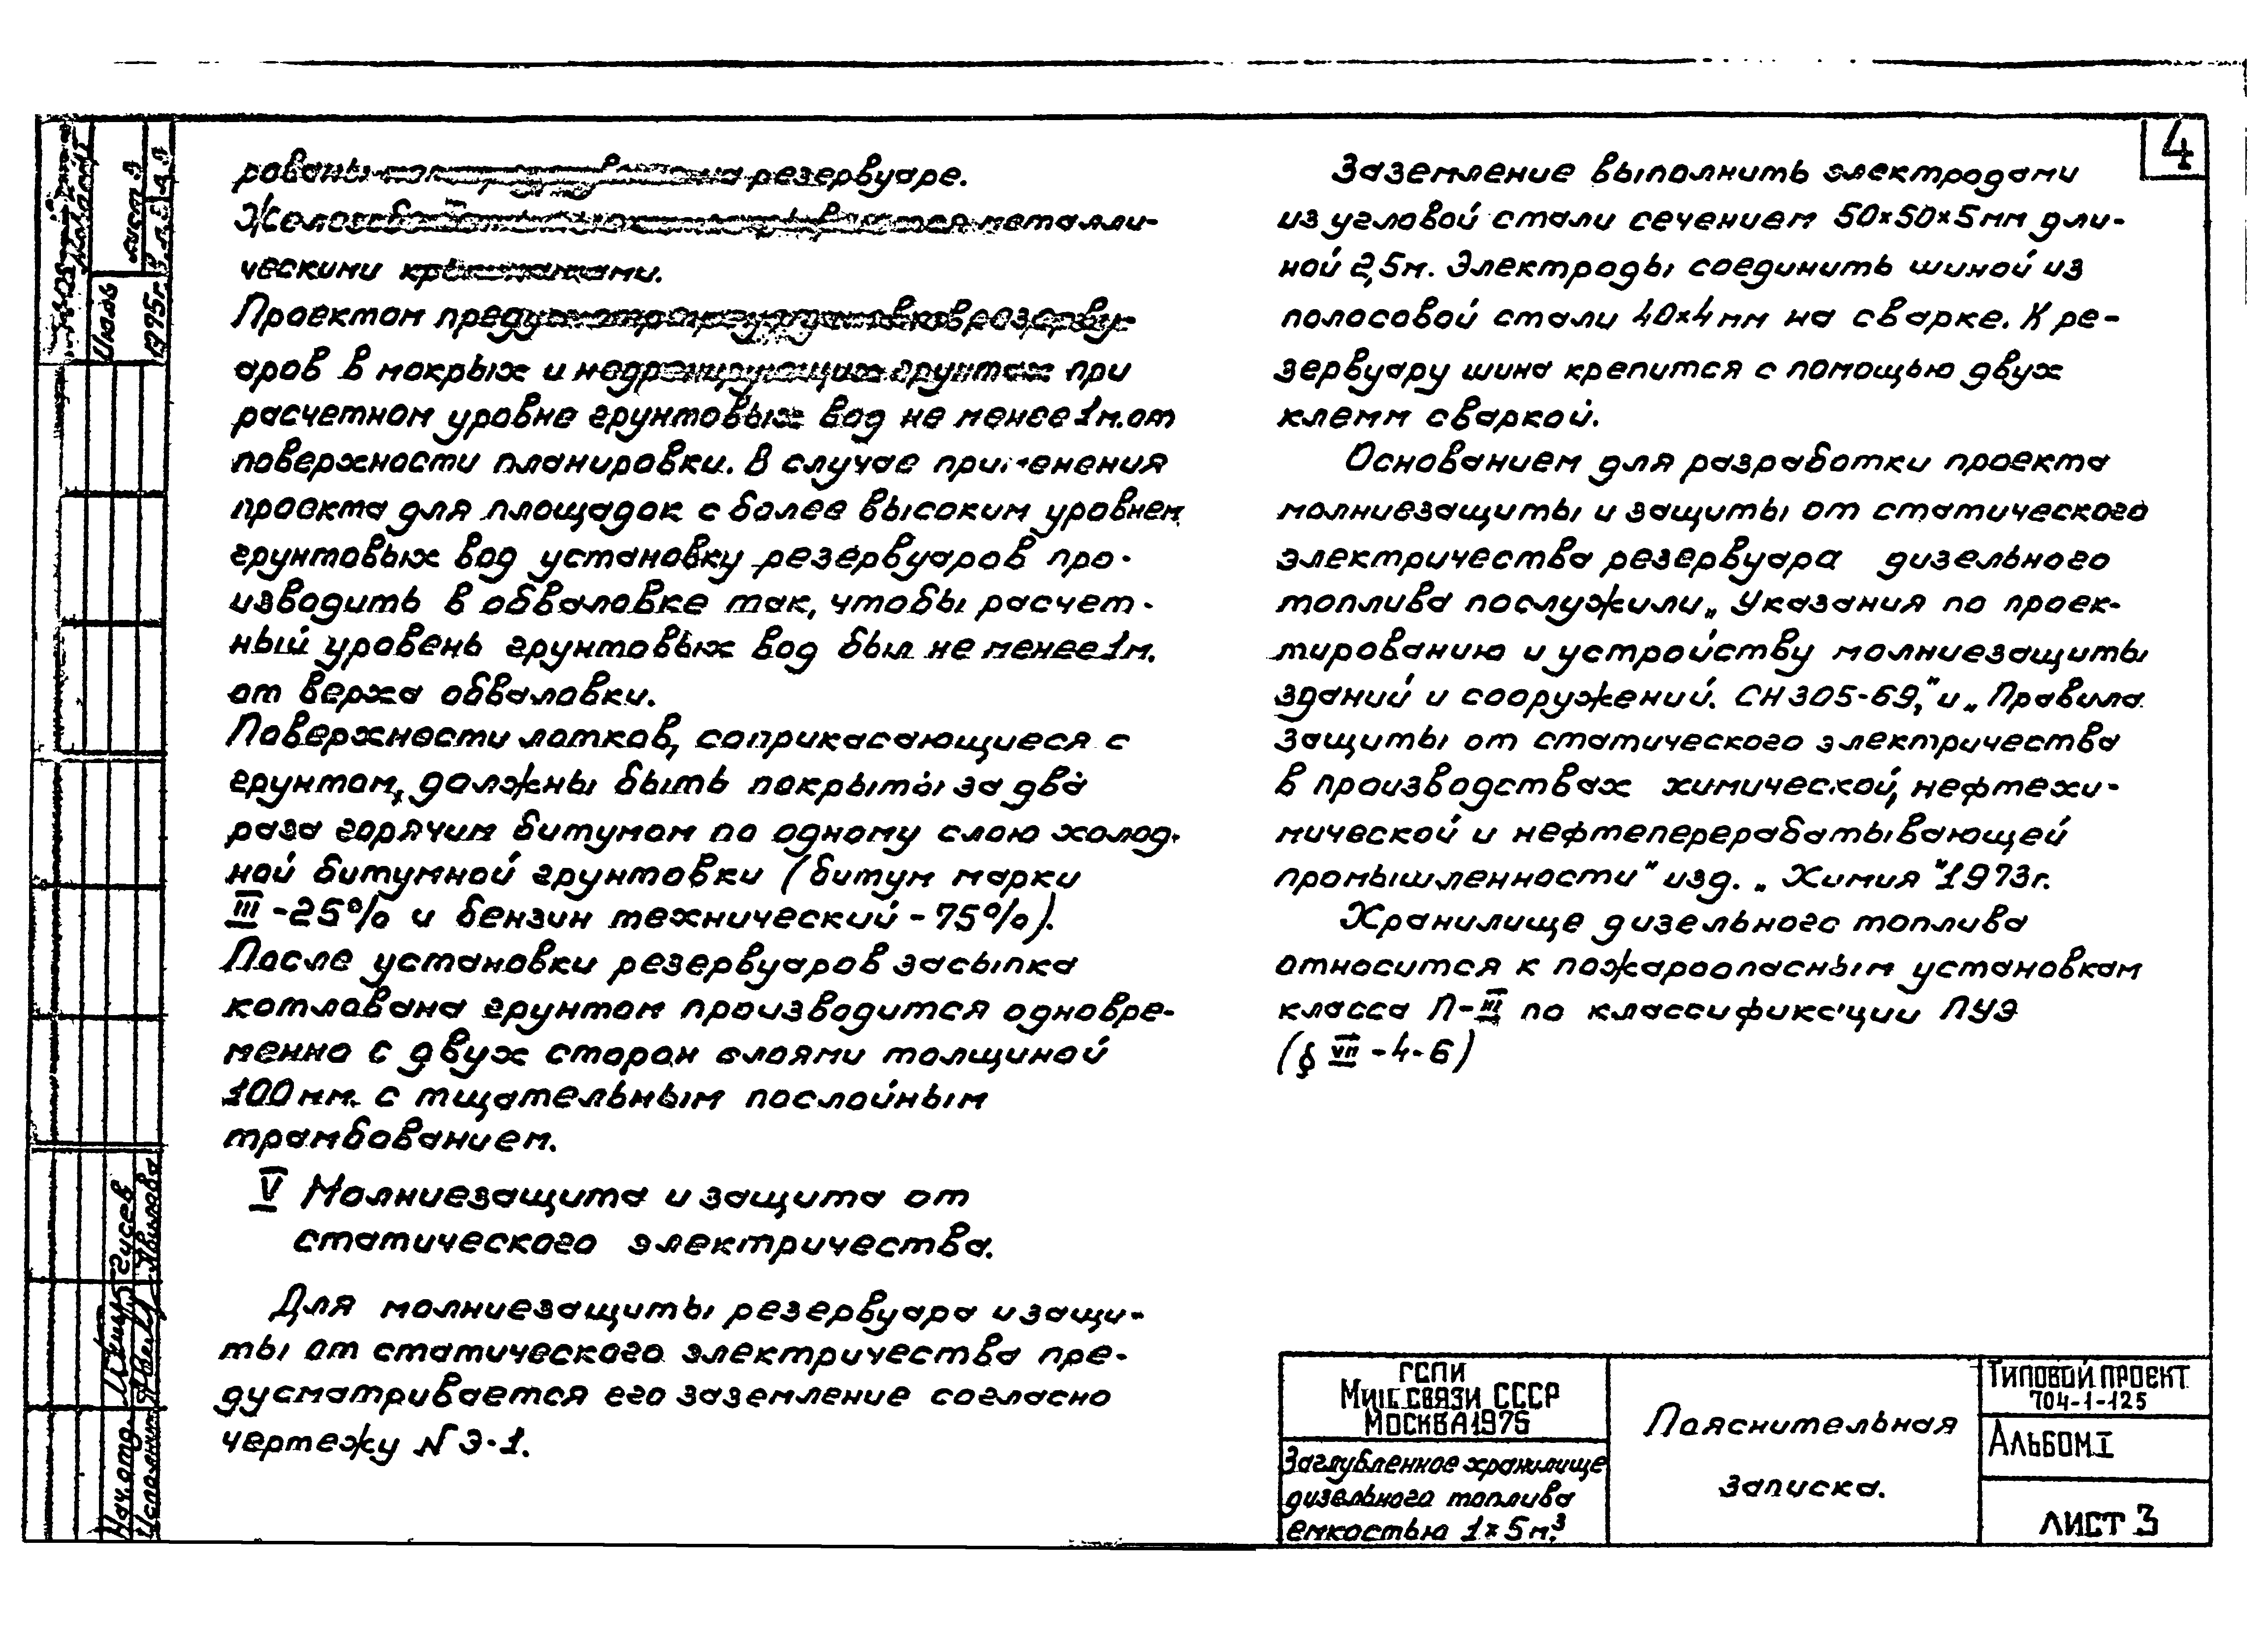 4
резервуаре.
металли-
ческими
Проектом
аров в мокрых и недренирующих грунтах при
расчетном уровне грунтовых вод не менее 1м. от
поверхности планировки. В случае применения
проекта для площадок с более высоким уровнем
грунтовых вод установку резервуаров про-
изводить в обваловке так, чтобы расчет-
ный уровень грунтовых вод был не менее 1м.
от верха обваловки.
Поверхности лотков, соприкасающиеся с
грунтом, должны быть покрыты за два
раза горячим битумом по одному слою холод-
ной битумной грунтовки (битум марки
III -25% и бензин технический - 75%).
После установки резервуаров засыпка
котлована грунтом производится одновре-
менно с двух сторон слоями толщиной
100мм. с тщательным послойным
трамбованием.
V Молниезащита и защита от
статического электричества.
Для молниезащиты резервуара и защи-
ты от статического электричества пре-
дусматривается его заземление согласно
чертежу N Э-1.
Заземление выполнить электродами
из угловой стали сечением 50×50×5мм дли-
ной 2,5м. Электроды соединить шиной из
полосовой стали 40×4мм на сварке. К ре-
зервуару шина крепится с помощью двух
клемм сваркой.
Основанием для разработки проекта
молниезащиты и защиты от статического
электричества резервуара дизельного
топлива послужили „Указания по проек-
тированию и устройству молниезащиты
зданий и сооружений. СН 305-69," и „Правила
защиты от статического электричества
в производствах химической, нефтехи-
мической и нефтеперерабатывающей
промышленности" изд. „Химия" 1973г.
Хранилище дизельного топлива
относится к пожароопасным установкам
класса П-III по классификации ПУЭ
(§ VII -4-6)
ГСПИ
Мин.связи СССР
Москва 1975
Заглубленное хранилище
дизельного топлива
емкостью 1×5м.³
Пояснительная
записка.
Типовой проект
704-1-125
Альбом I
Лист 3
Нач. отд. Гусев
Исполнит.
лист 3
1975г.